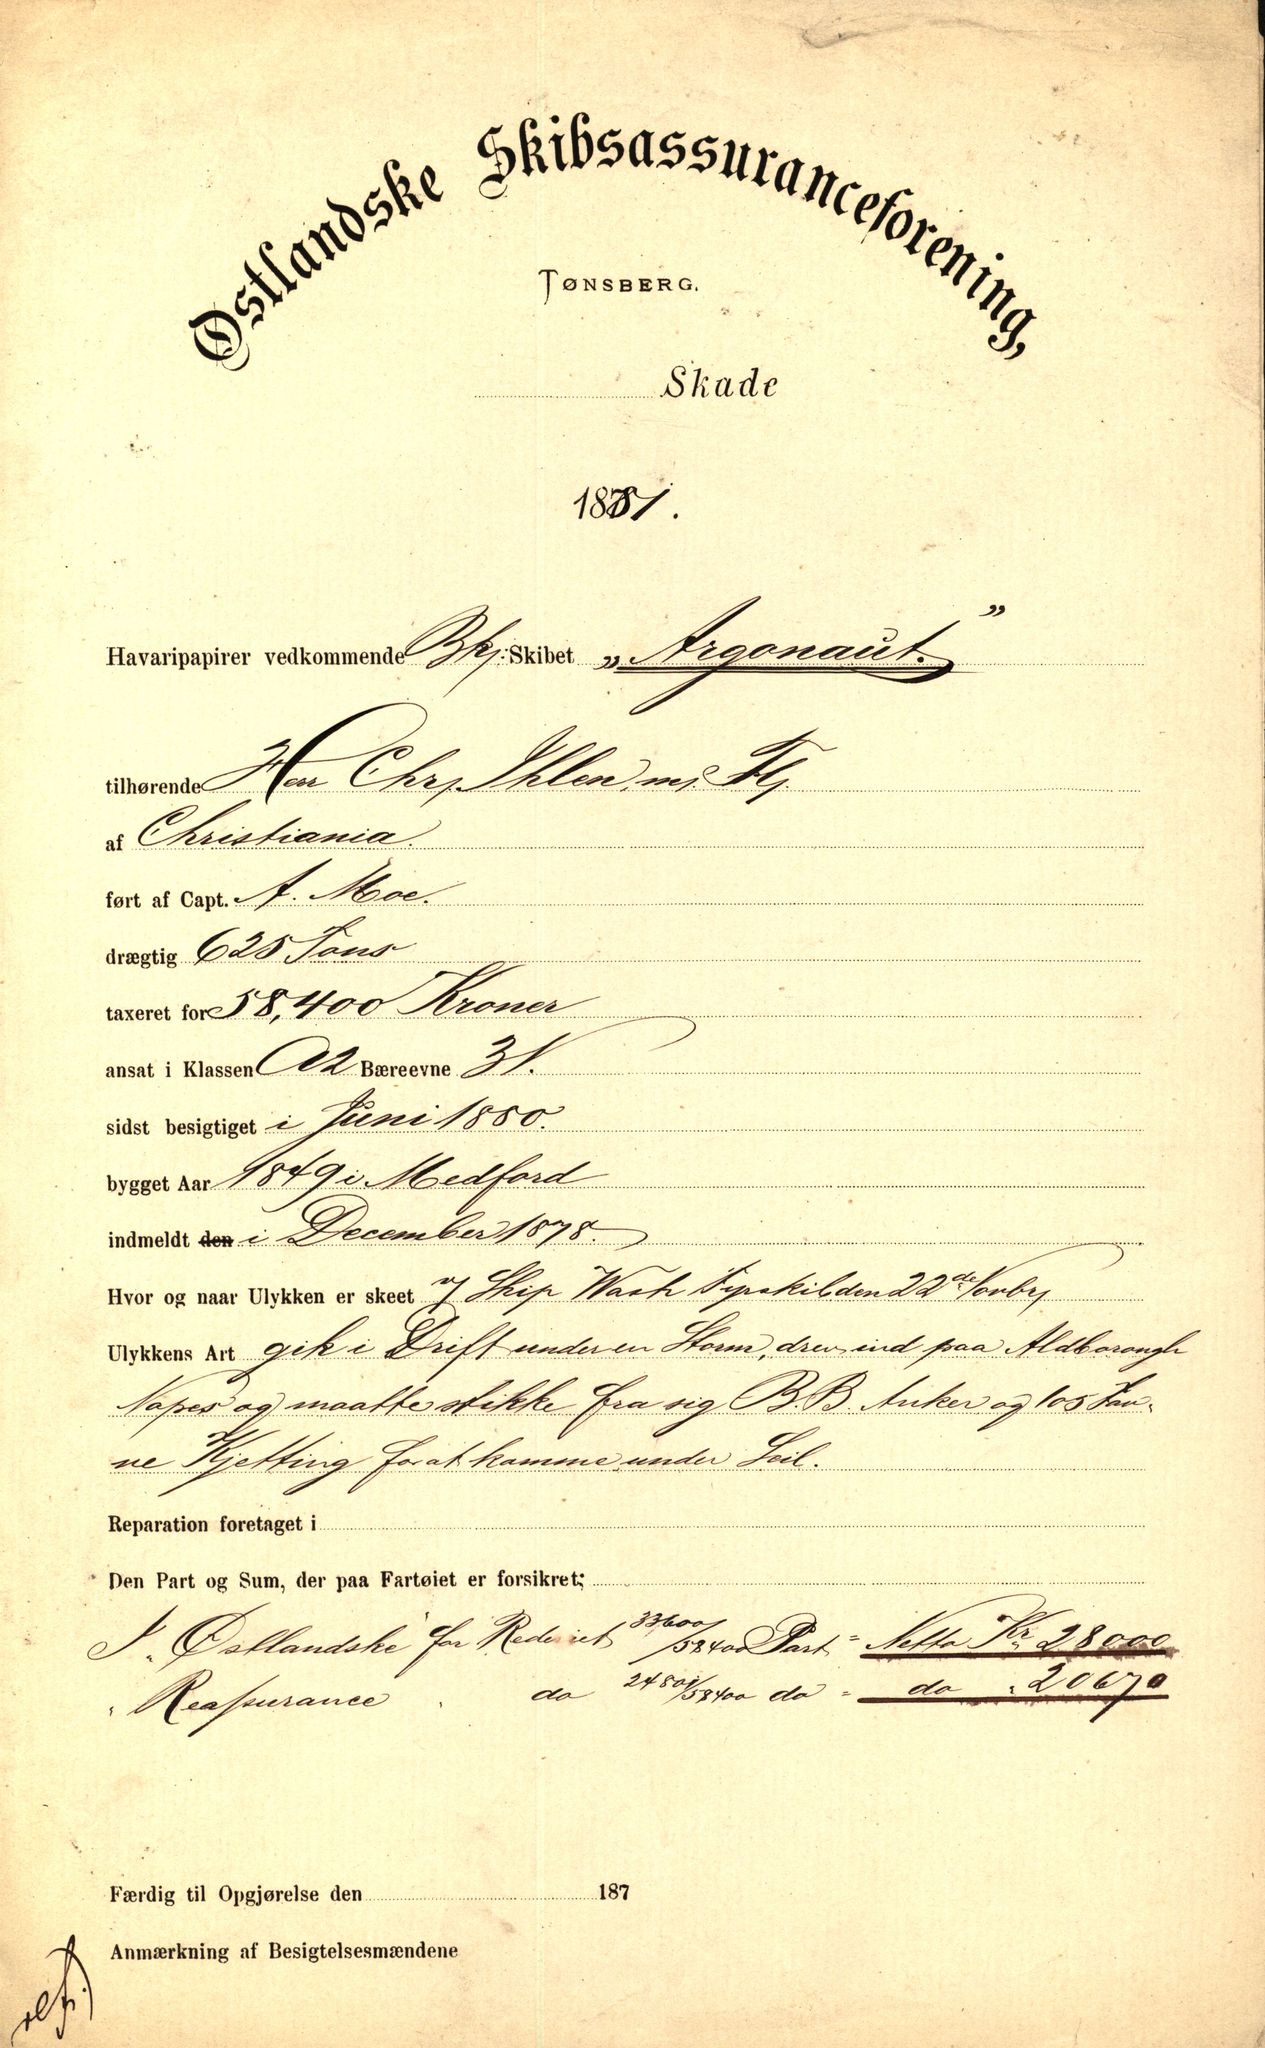 Østlandske Skibsassuranceforening,
TØNSBERG.
Skade
1881.
Havaripapirer vedkommende Bkj: Skibet „Argonaut."
tilhørende Herr Chr. Ihlen, m. Fl.
af Christiania.
ført af Capt. A. Moe.
drægtig 625 Tons
taxeret for 58,400 Kroner
ansat i Klassen A2 Bæreevne 3/
sidst besigtiget i Juni 1880.
bygget Aar 1849 i Medford
indmeldt den i December 1878.
Hvor og naar Ulykken er skeet v/ Ship Wash Fyrskib den 22de Novbr
Ulykkens Art gik i Drift under en Storm, drev ind paa Aldborough
Napes og maatte stikke fra sig B.B. Anker og 105 Fav-
ne Kjetting for at komme under Seil.
Reparation foretaget i
Den Part og Sum, der paa Fartøiet er forsikret;
I „Østlandske" for Rederiet 33600/58400 Part = Netto Kr. 28000
" Reassurance " do 24800/58400 do = do " 20670
Færdig til Opgjørelse den 187
Anmærkning af Besigtelsesmændene